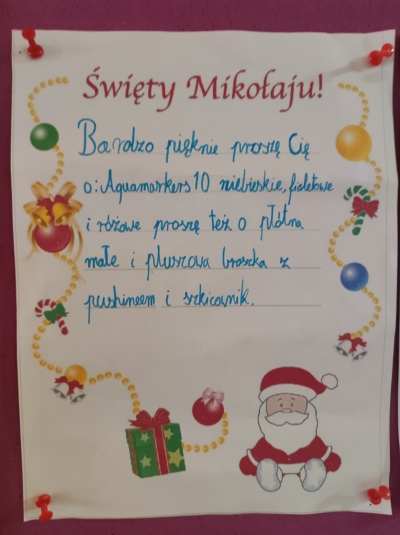 Święty Mikołaju!
Bardzo pięknie proszę Cię
o: Aquamarkers 10 niebieskie, fioletowe
i różowe proszę też o płótna
małe i pluszowa broszka z
pushineem i szkicownik.